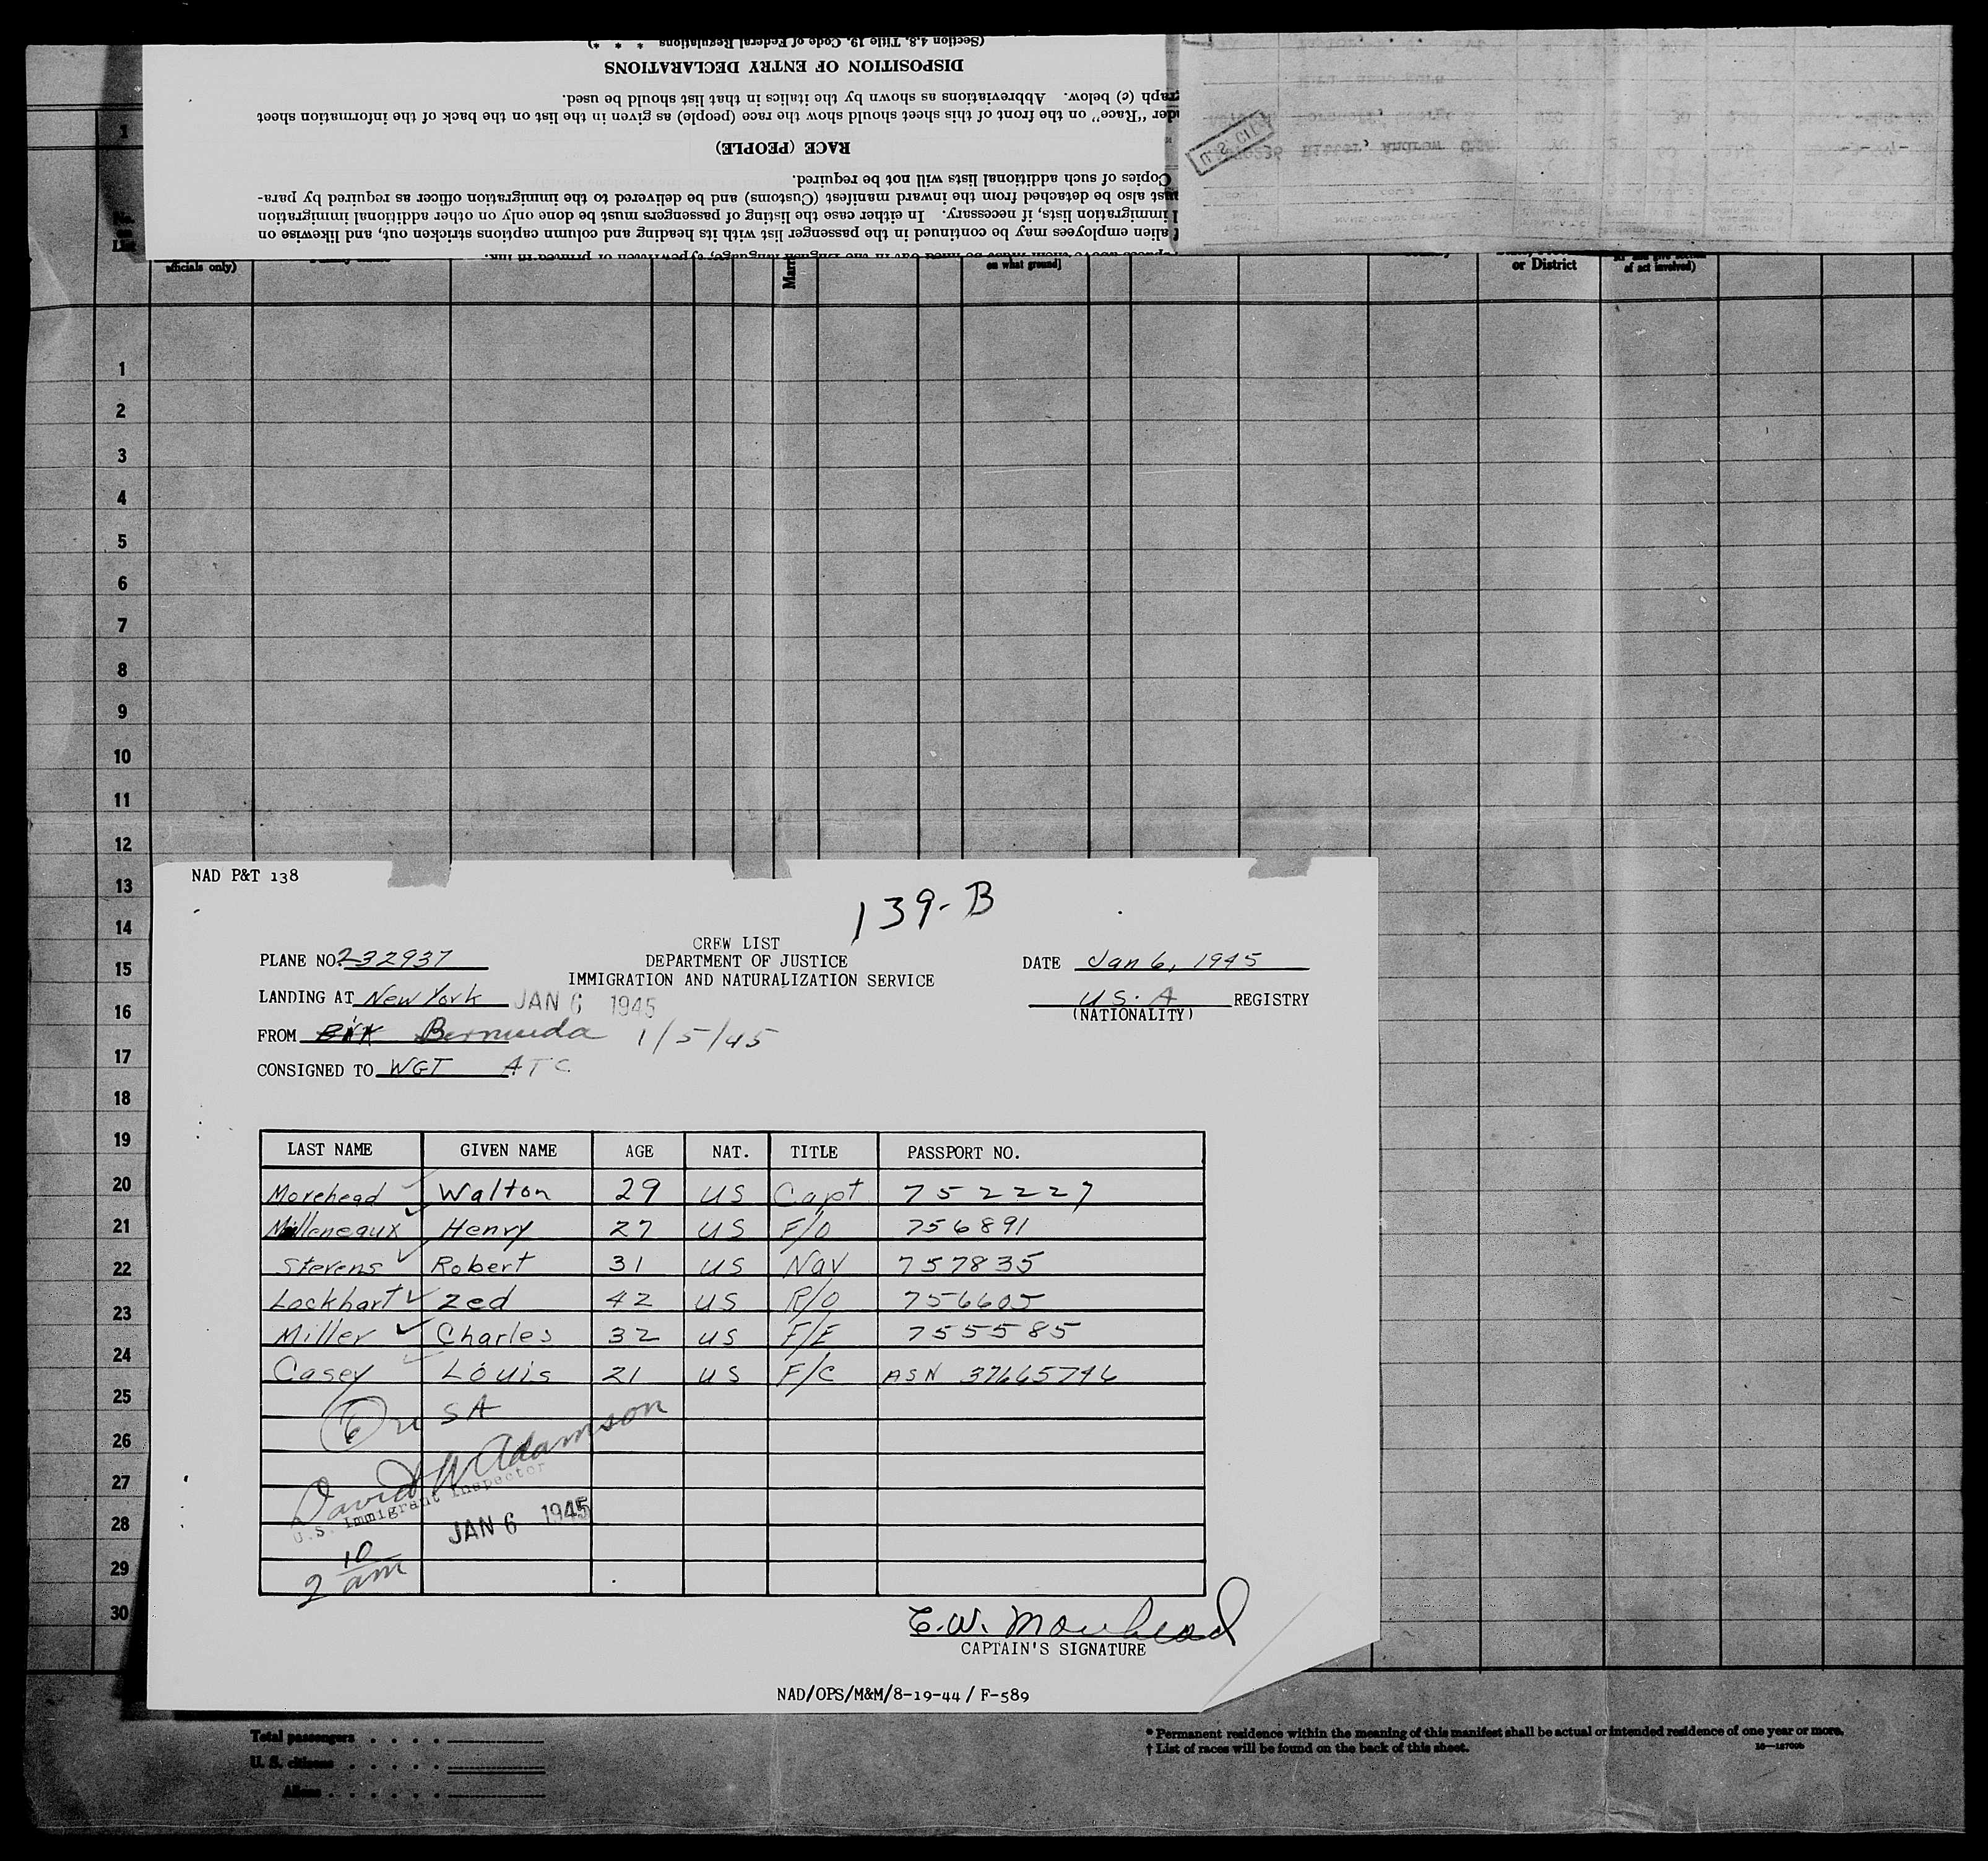 (Section 4.8, Title 19, Code of Federal Regulations * * *)
DISPOSITION OF ENTRY DECLARATIONS
graph (c) below. Abbreviations as shown by the italics in that list should be used.
"Race" on the front of this sheet should show the race (people) as given in the list on the back of the information sheet
RACE (PEOPLE)
Copies of such additional lists will not be required.
also be detached from the inward manifest (Customs) and be delivered to the immigration officer as required by para-
immigration lists, if necessary. In either case the listing of passengers must be done only on other additional immigration
alien employees may be continued in the passenger list with its heading and column captions stricken out, and likewise on
U.S. CIT
Andrew
1
No.
List
officials only)
on what ground]
or District
of act involved)
1
2
3
4
5
6
7
8
9
10
11
12
13
14
15
16
17
18
19
20
21
22
23
24
25
26
27
28
29
30
NAD P&T 138
139-B
CREW LIST
PLANE NO. 232937 DEPARTMENT OF JUSTICE DATE Jan 6, 1945
IMMIGRATION AND NATURALIZATION SERVICE
LANDING AT New York JAN 6 1945 U.S.A REGISTRY
(NATIONALITY)
FROM Bermuda 1/5/45
CONSIGNED TO WGT ATC
LAST NAME GIVEN NAME AGE NAT. TITLE PASSPORT NO.
Morehead Walton 29 US Capt 752227
Milleneaux Henry 27 US F/O 756891
Stevens Robert 31 US Nav 757835
Lockhart Zed 42 US R/O 756605
Miller Charles 32 US F/E 755585
Casey Louis 21 US F/C ASN 37665746
6 USA
David W Adamson
U.S. Immigrant Inspector
JAN 6 1945
2 10 am
E.W. Morehead
CAPTAIN'S SIGNATURE
NAD/OPS/M&M/8-19-44 / F-589
Total passengers . . . .
U. S. citizens . . . . .
Aliens . . . . . .
* Permanent residence within the meaning of this manifest shall be actual or intended residence of one year or more.
† List of races will be found on the back of this sheet.